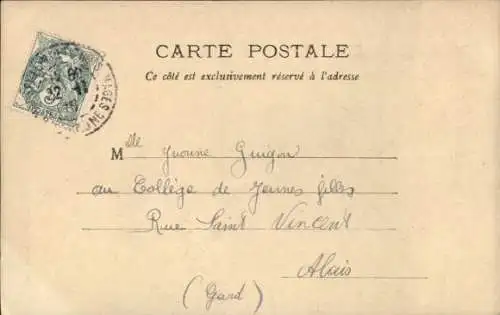 CARTE POSTALE
Ce côté est exclusivement réservé à l'adresse
Mlle Yvonne Guigon
au Collège de Jeunes filles
Rue Saint Vincent
Alais
(Gard)